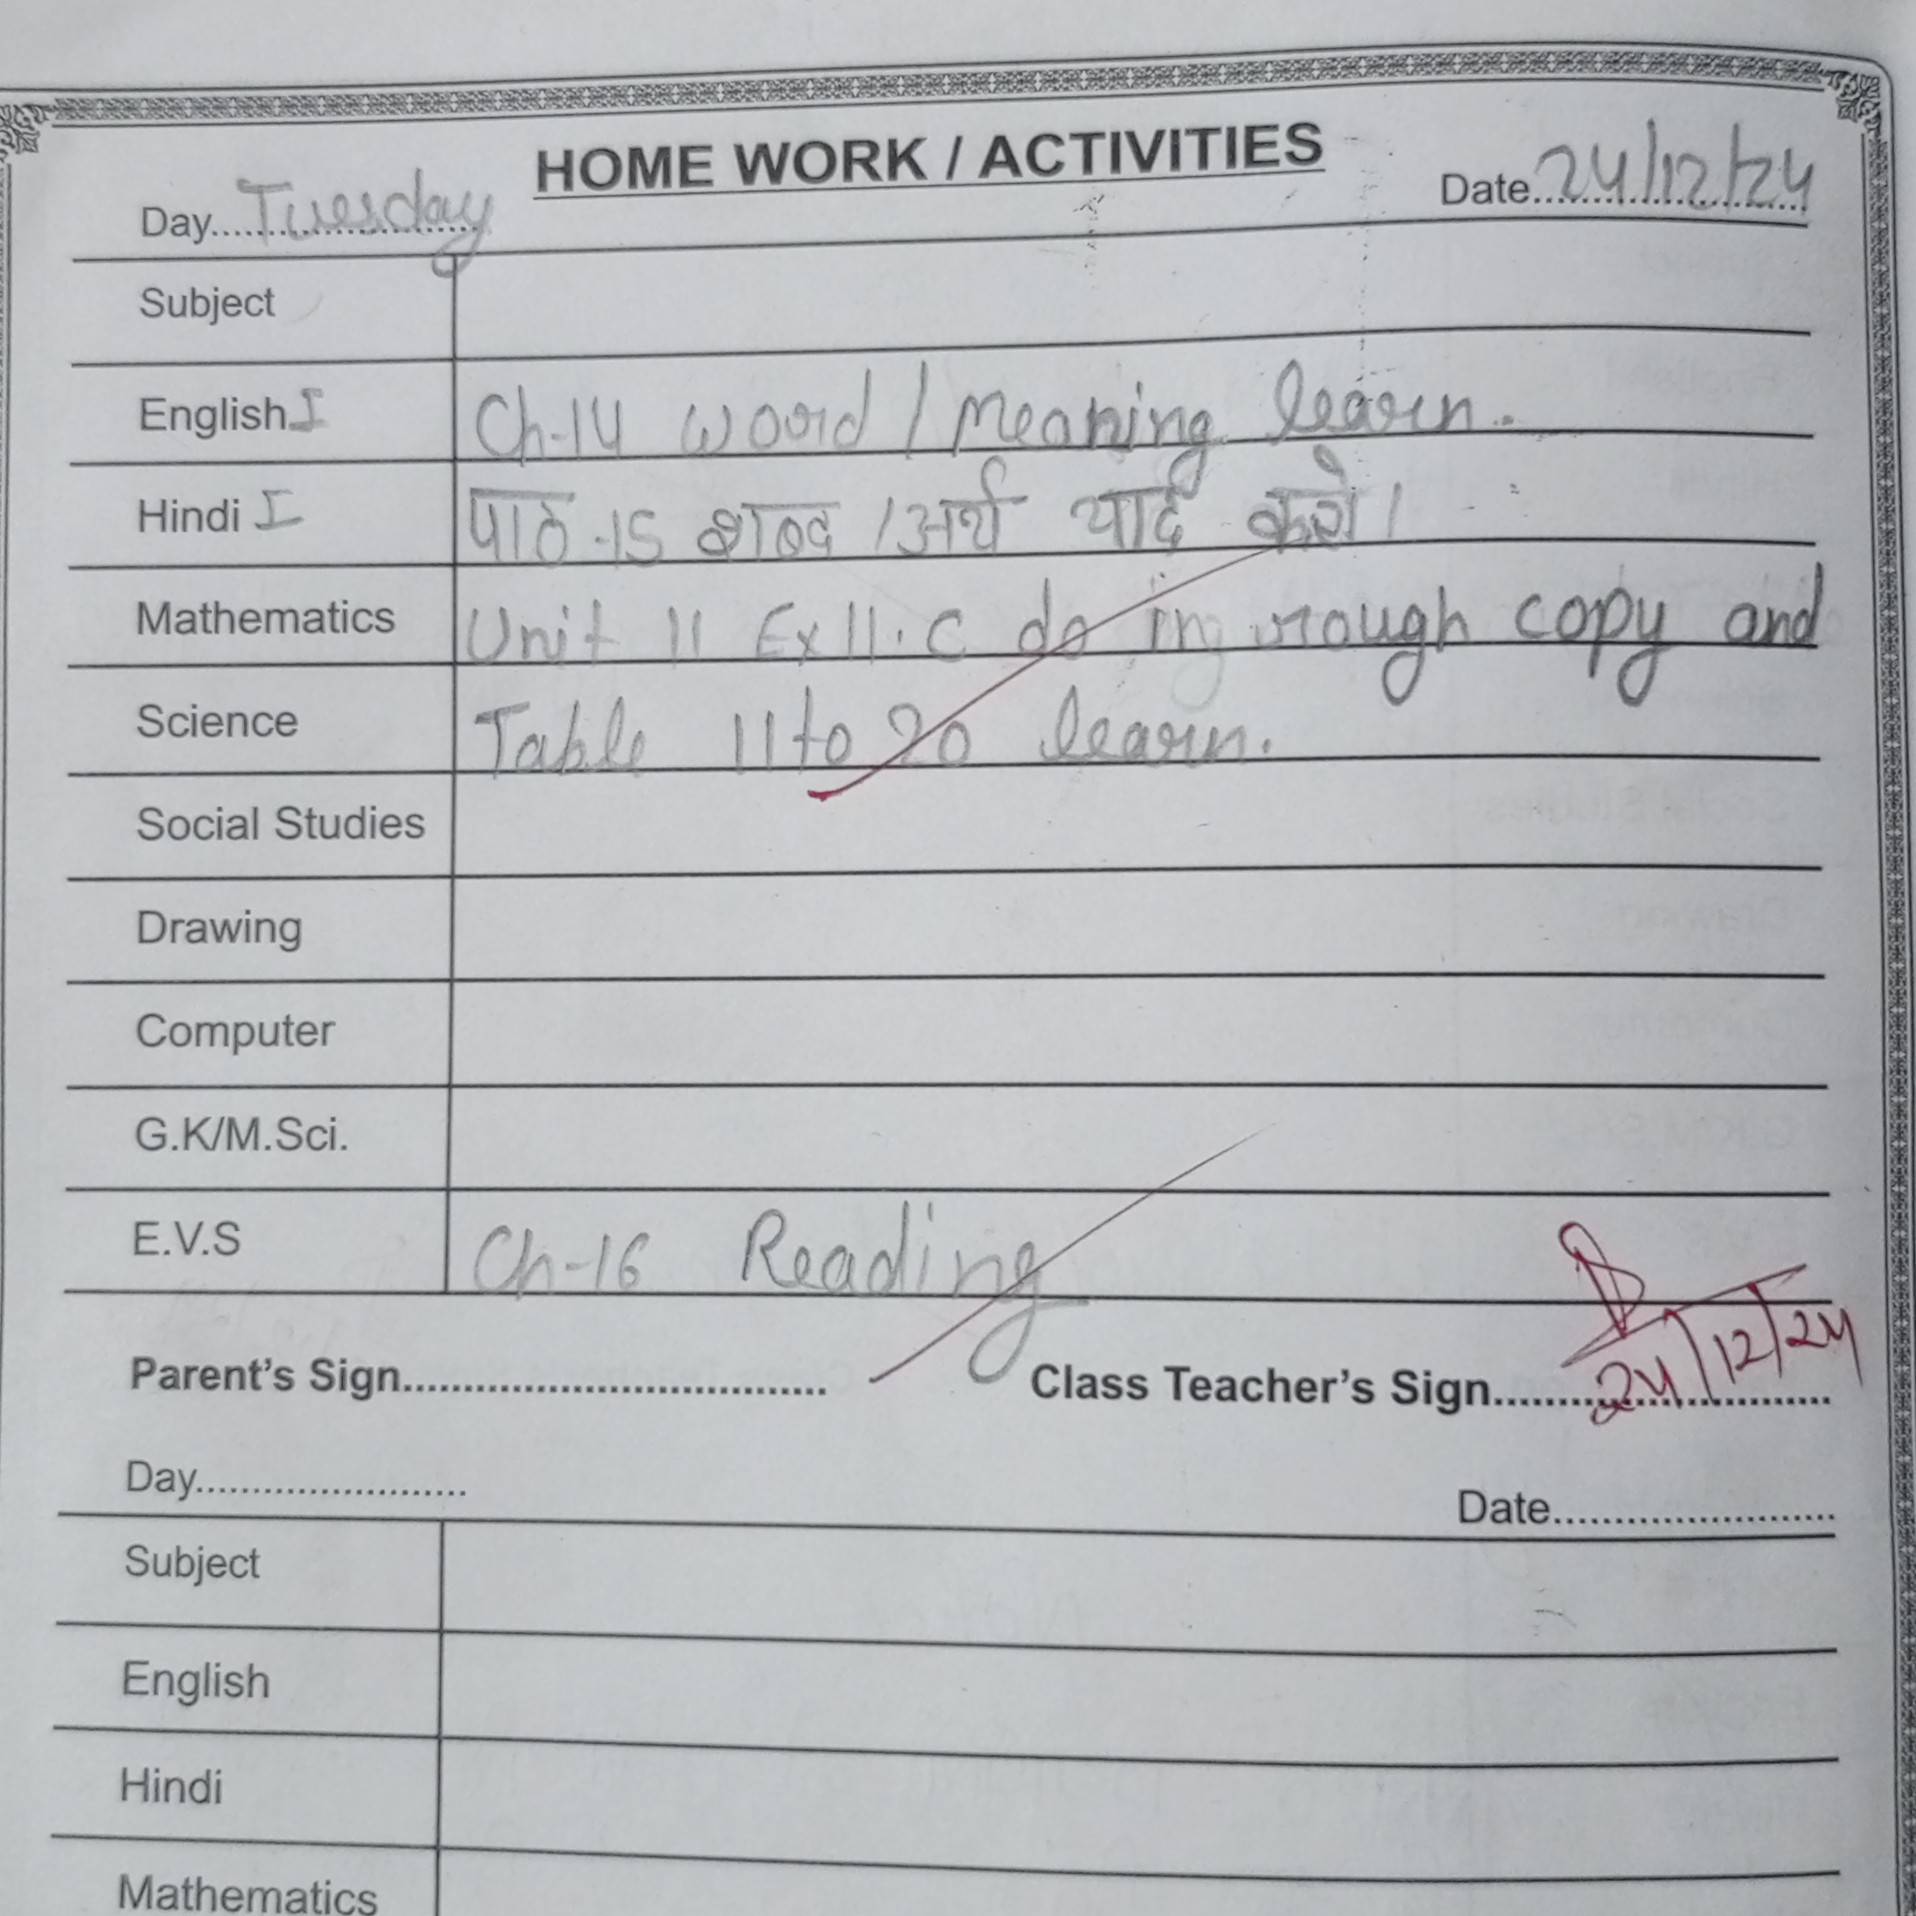 HOME WORK / ACTIVITIES
Day..... Tuesday Date..... 24/12/24
Subject
English I Ch-14 word / Meaning learn.
Hindi I पाठ -15 शब्द / अर्थ याद करो।
Mathematics Unit 11 Ex 11.C do in rough copy and
Science Table 11 to 20 learn.
Social Studies
Drawing
Computer
G.K/M.Sci.
E.V.S Ch-16 Reading
Parent's Sign..... Class Teacher's Sign..... 24/12/24
Day..... Date.....
Subject
English
Hindi
Mathematics